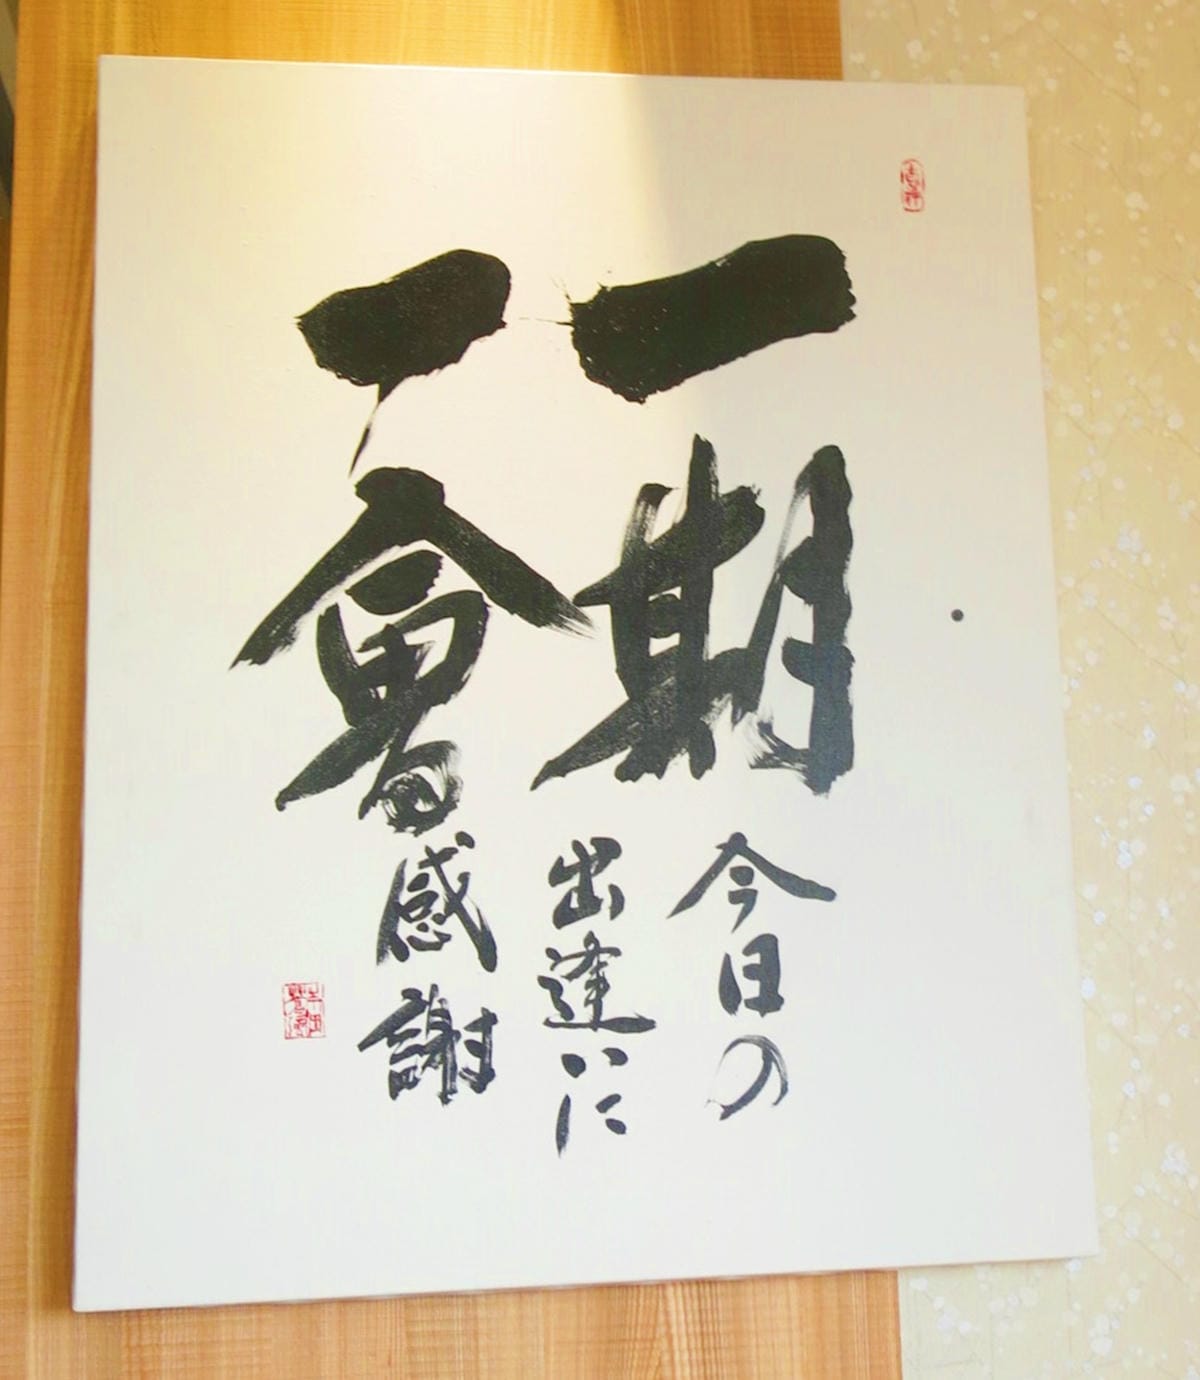 一期
一會
今日の
出逢いに
感謝